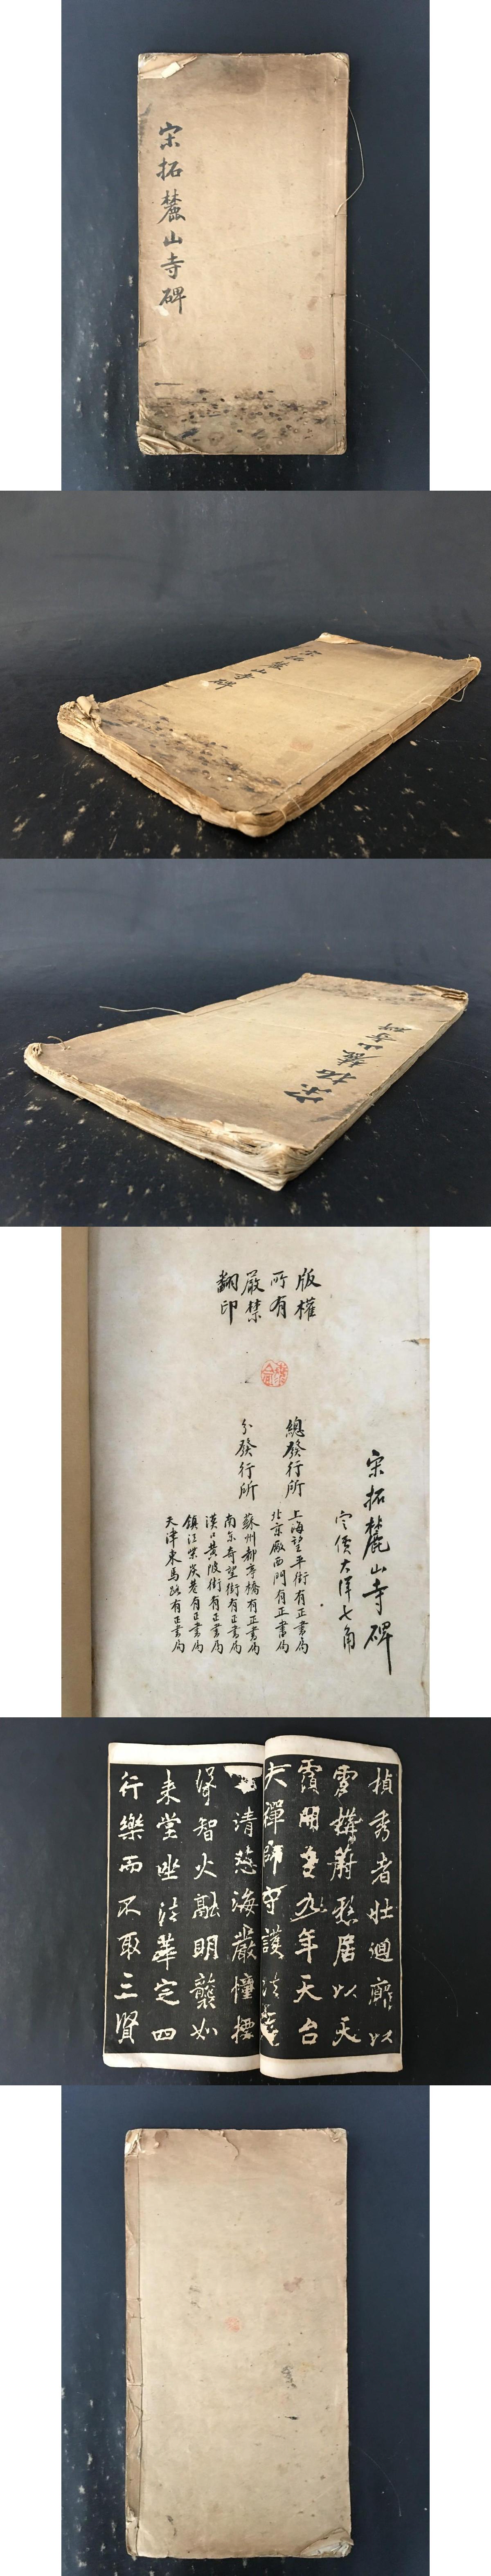 宋拓麓山寺碑
宋拓麓山寺碑
宋拓麓山寺碑
宋拓麓山寺碑
定價大洋七角
版權
所有
嚴禁
翻印
總發行所
上海望平街有正書局
北京廠西門有正書局
分發行所
蘇州都亭橋有正書局
南京奇望街有正書局
漢口黃陂街有正書局
鎮江柴炭巷有正書局
天津東馬路有正書局
楨秀者壯迴廊以
雲構蔚懸居以天
霞開皇九年天台
大禪師守護法
清慈海嚴幢標
絳智火融明襲如
来堂坐法華定四
行樂而不取三賢